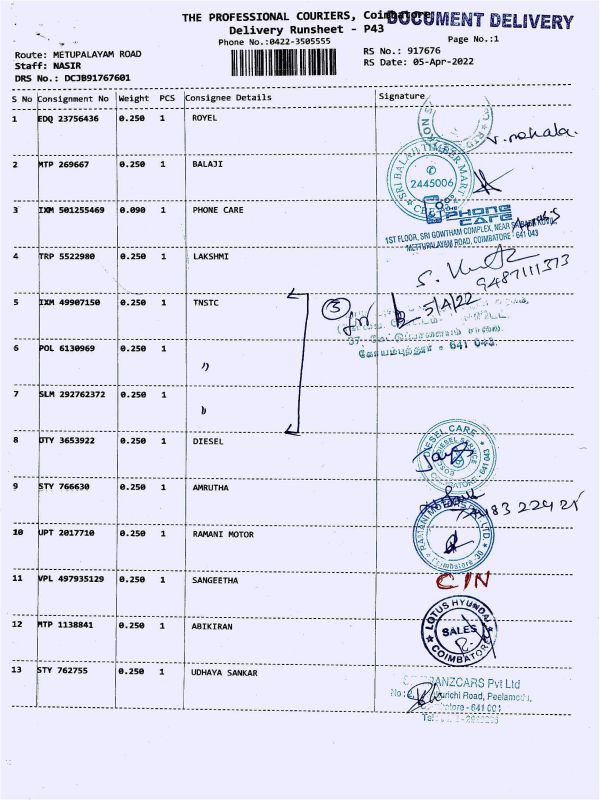 THE PROFESSIONAL COURIERS, Coimbatore
DOCUMENT DELIVERY
Delivery Runsheet - P43
Phone No.:0422-3505555
Page No.:1
Route: METUPALAYAM ROAD
RS No.: 917676
Staff: NASIR
RS Date: 05-Apr-2022
DRS No.: DCJB91767601
S No Consignment No Weight PCS Consignee Details Signature
1 EDQ 23756436 0.250 1 ROYEL
2 MTP 269667 0.250 1 BALAJI
SRI BALAJI TIMBER MART
2445006
3 IXM 501255469 0.090 1 PHONE CARE
PHONE CARE
1ST FLOOR, SRI GOWTHAM COMPLEX, NEAR
METTUPALAYAM ROAD, COIMBATORE - 641 043
4 TRP 5522980 0.250 1 LAKSHMI
9487111373
5 IXM 49907150 0.250 1 TNSTC
3
5/4/22
37,
கோயம்புத்தூர் - 641 043.
6 POL 6130969 0.250 1
7 SLM 292762372 0.250 1
8 DTY 3653922 0.250 1 DIESEL
DIESEL CARE
COIMBATORE - 641 043
9 STY 766630 0.250 1 AMRUTHA
10 UPT 2017710 0.250 1 RAMANI MOTOR
11 VPL 497935129 0.250 1 SANGEETHA
CIN
12 MTP 1138841 0.250 1 ABIKIRAN
LOTUS HYUNDAI
SALES
COIMBATORE
13 STY 762755 0.250 1 UDHAYA SANKAR
Pvt Ltd
Road, Peelamedu,